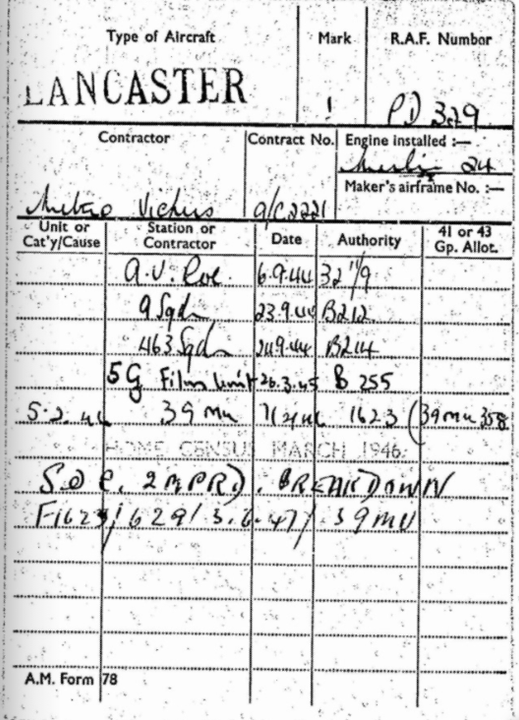 Type of Aircraft Mark R.A.F. Number
LANCASTER 1 PD 329
Contractor Contract No. Engine installed :—
Merlin 24
Maker's airframe No. :—
Metro Vickers A/C2221
Unit or Cat'y/Cause Station or Contractor Date Authority 41 or 43 Gp. Allot.
A.V. Roe. 6.9.44 32"/9
9 Sqdn 23.9.44 B212
463 Sqdn 24.9.44 B214
5G Film Unit 26.3.45 B 255
5.2.46 39 mu 7/2/46 1623 (39 mu 358
HOME CENSUS MARCH 1946.
S.O.C. BREAKDOWN
F1623/629/3.6.47/ 39 MU
A.M. Form 78